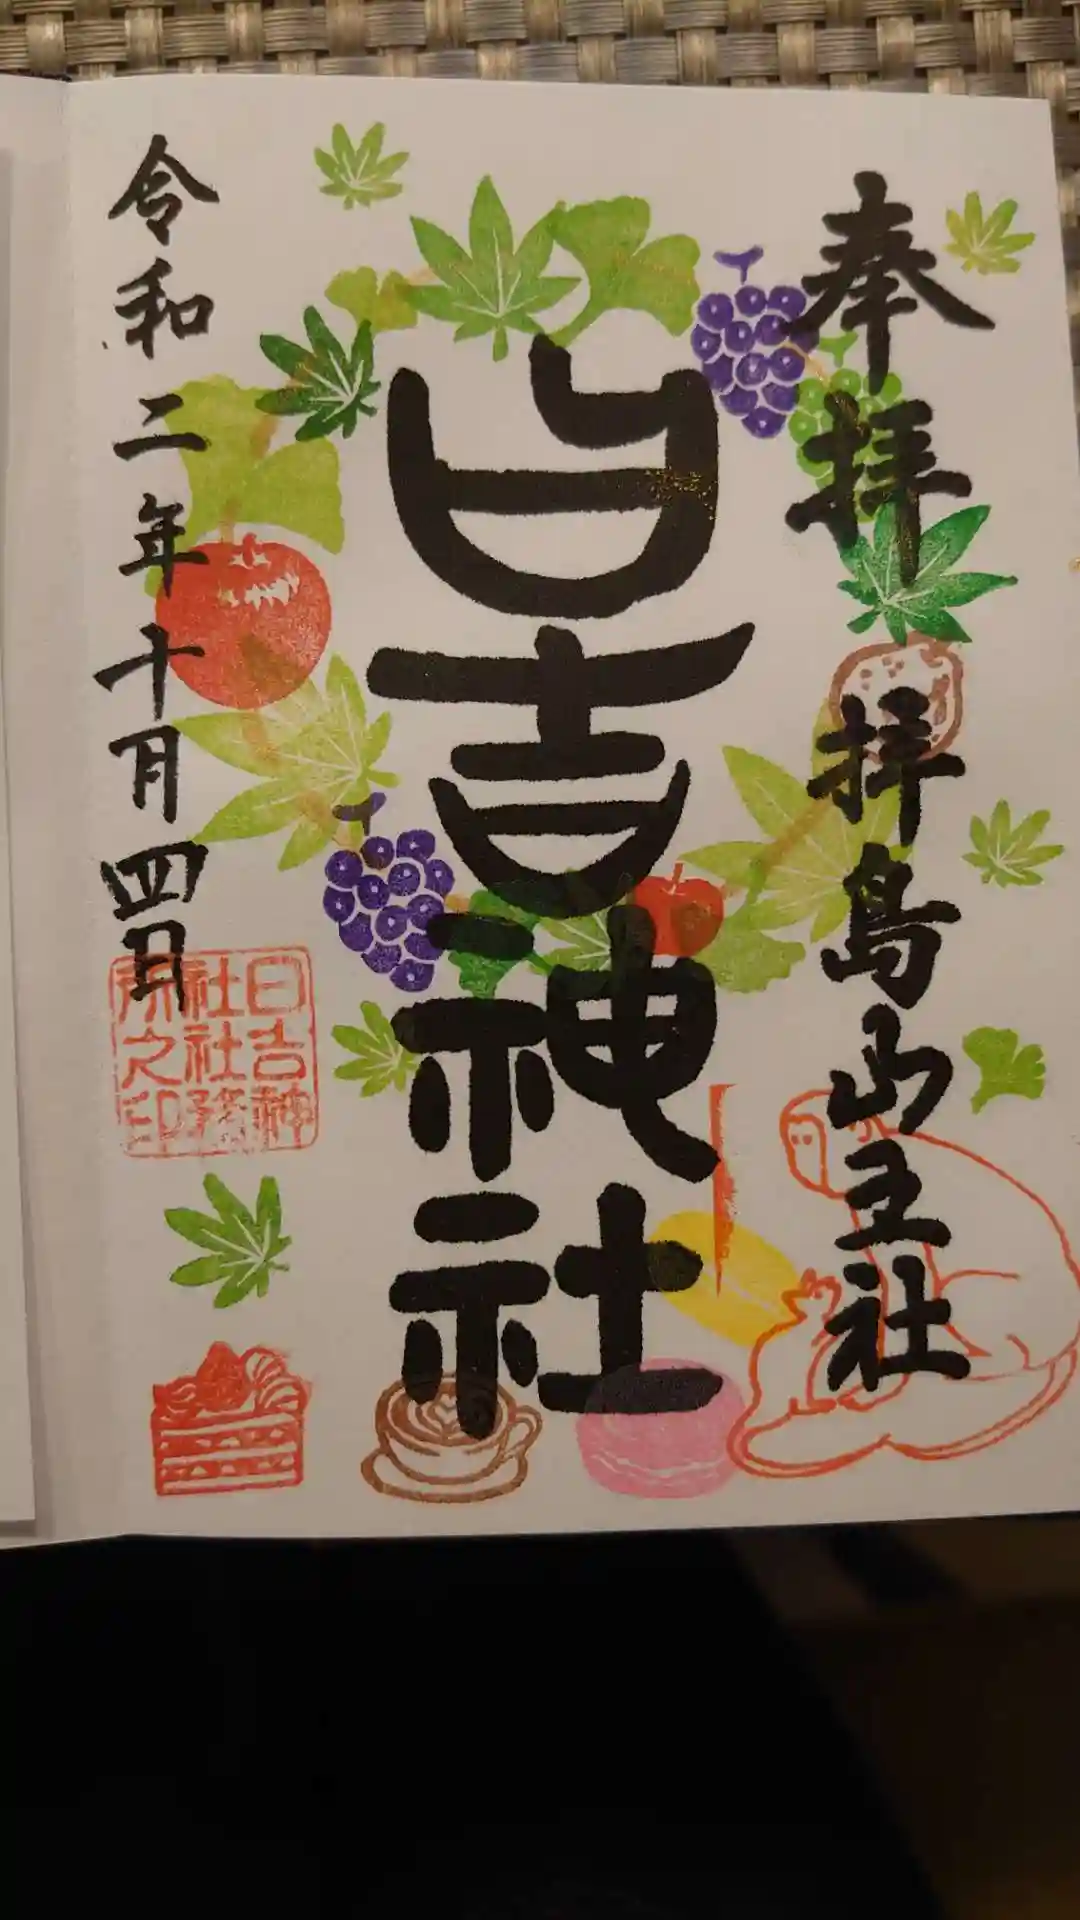 奉拝 拝島山王社
日吉神社
令和二年十月四日
日吉神
社社務
所之印